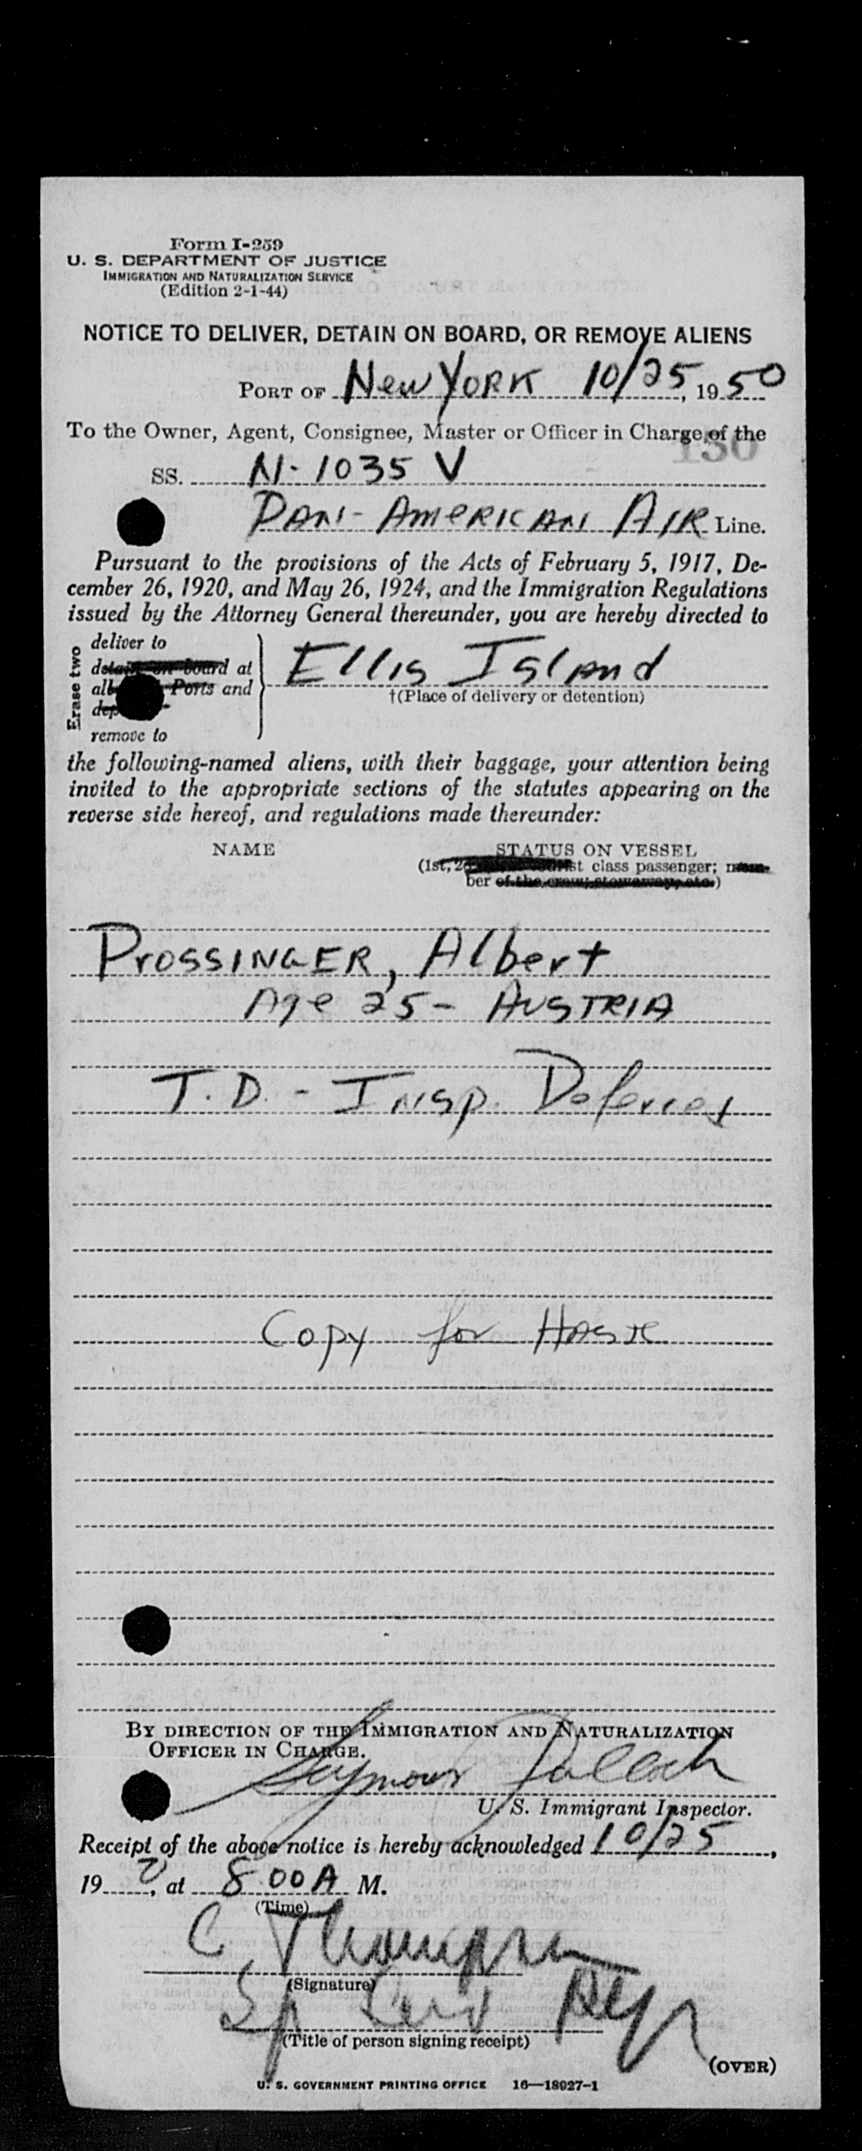 Form I-259
U. S. DEPARTMENT OF JUSTICE
IMMIGRATION AND NATURALIZATION SERVICE
(Edition 2-1-44)
NOTICE TO DELIVER, DETAIN ON BOARD, OR REMOVE ALIENS
PORT OF New YORK 10/25, 1950
To the Owner, Agent, Consignee, Master or Officer in Charge of the
130
SS. N-1035 V
PAN-AMERICAN AIR Line.
Pursuant to the provisions of the Acts of February 5, 1917, De-
cember 26, 1920, and May 26, 1924, and the Immigration Regulations
issued by the Attorney General thereunder, you are hereby directed to
Erase two
deliver to
detain on board at
all Ports and
remove to
Ellis Island
†(Place of delivery or detention)
the following-named aliens, with their baggage, your attention being
invited to the appropriate sections of the statutes appearing on the
reverse side hereof, and regulations made thereunder:
NAME STATUS ON VESSEL
(1st, 2d class passenger; mem-
ber of the crew; stowaway, etc.)
PROSSINGER, Albert
Age 25 - AUSTRIA
T.D. - Insp. Deferred
Copy for
BY DIRECTION OF THE IMMIGRATION AND NATURALIZATION
OFFICER IN CHARGE.
Seymour
U. S. Immigrant Inspector.
Receipt of the above notice is hereby acknowledged 10/25,
19 0, at 8:00 A M.
(Time)
C Thompson
(Signature)
(Title of person signing receipt)
(OVER)
U. S. GOVERNMENT PRINTING OFFICE 16—18027-1